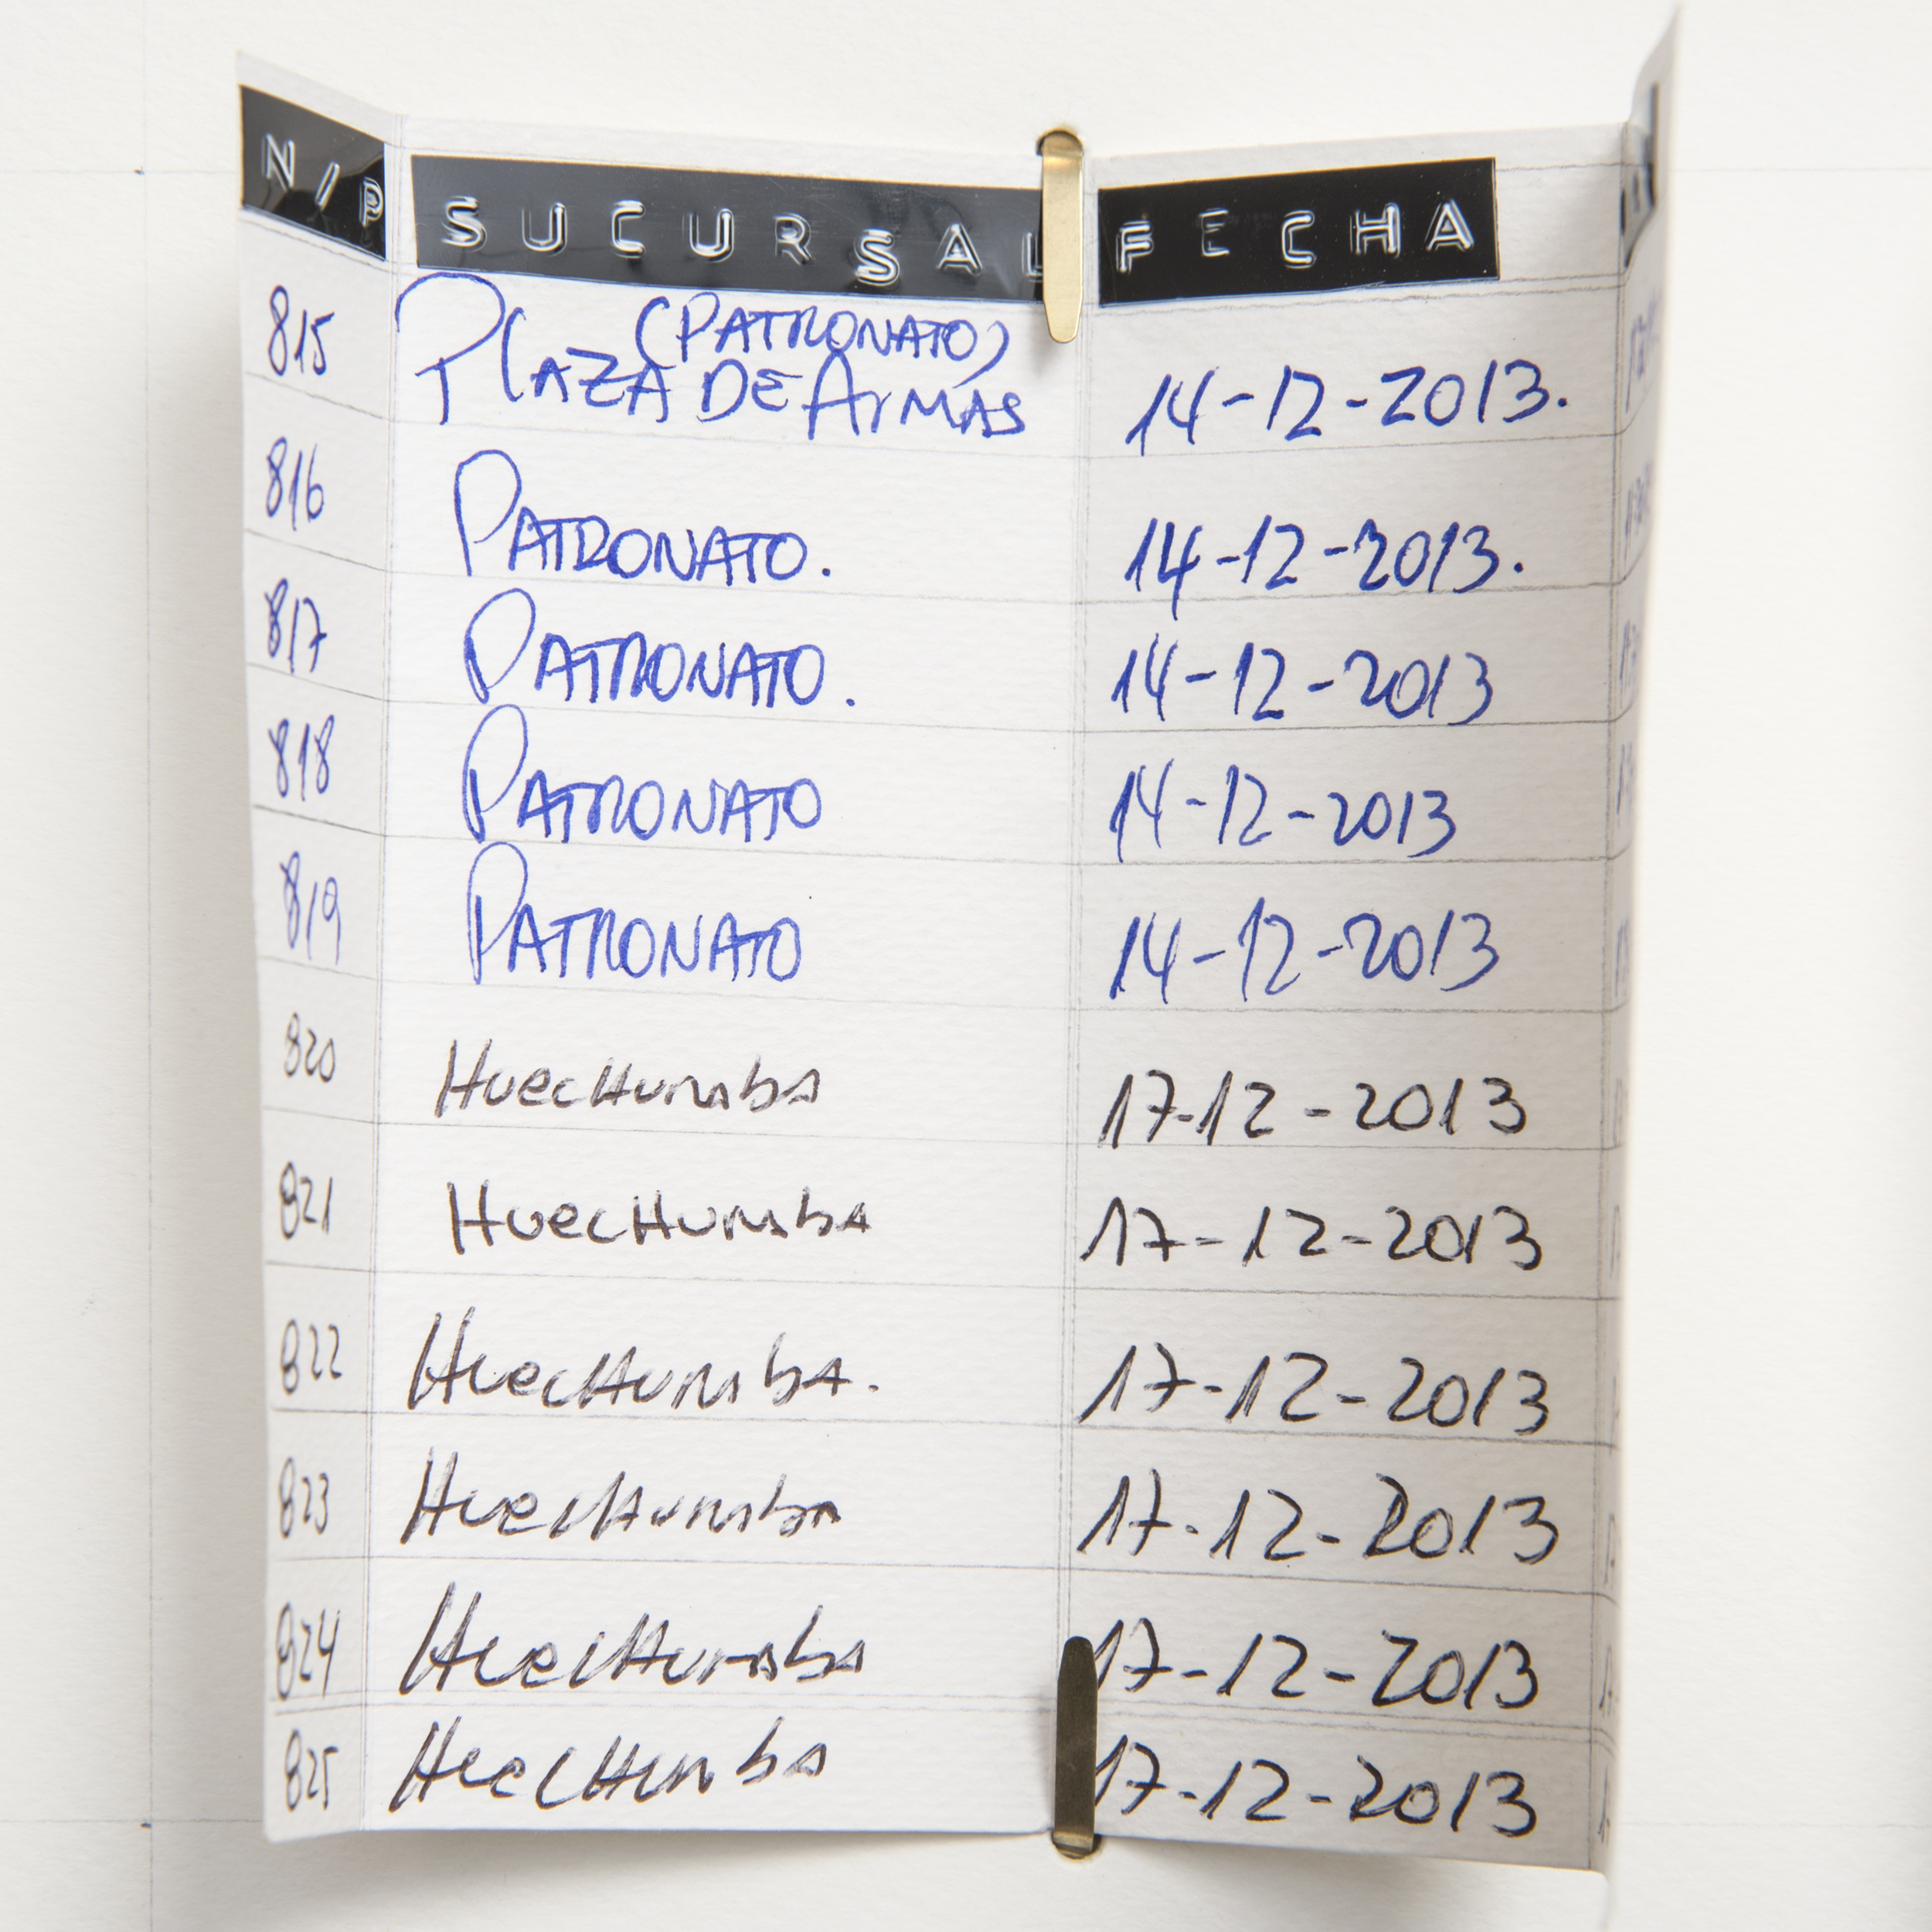 N/P SUCURSAL FECHA
815 (PATRONATO) PLAZA DE ARMAS 14-12-2013.
816 PATRONATO. 14-12-2013.
817 PATRONATO. 14-12-2013
818 PATRONATO 14-12-2013
819 PATRONATO 14-12-2013
820 HuecHuraba 17-12-2013
821 HuecHuraba 17-12-2013
822 HuecHurabA. 17-12-2013
823 HuecHuraba 17-12-2013
824 HuecHuraba 17-12-2013
825 HuecHuraba 17-12-2013